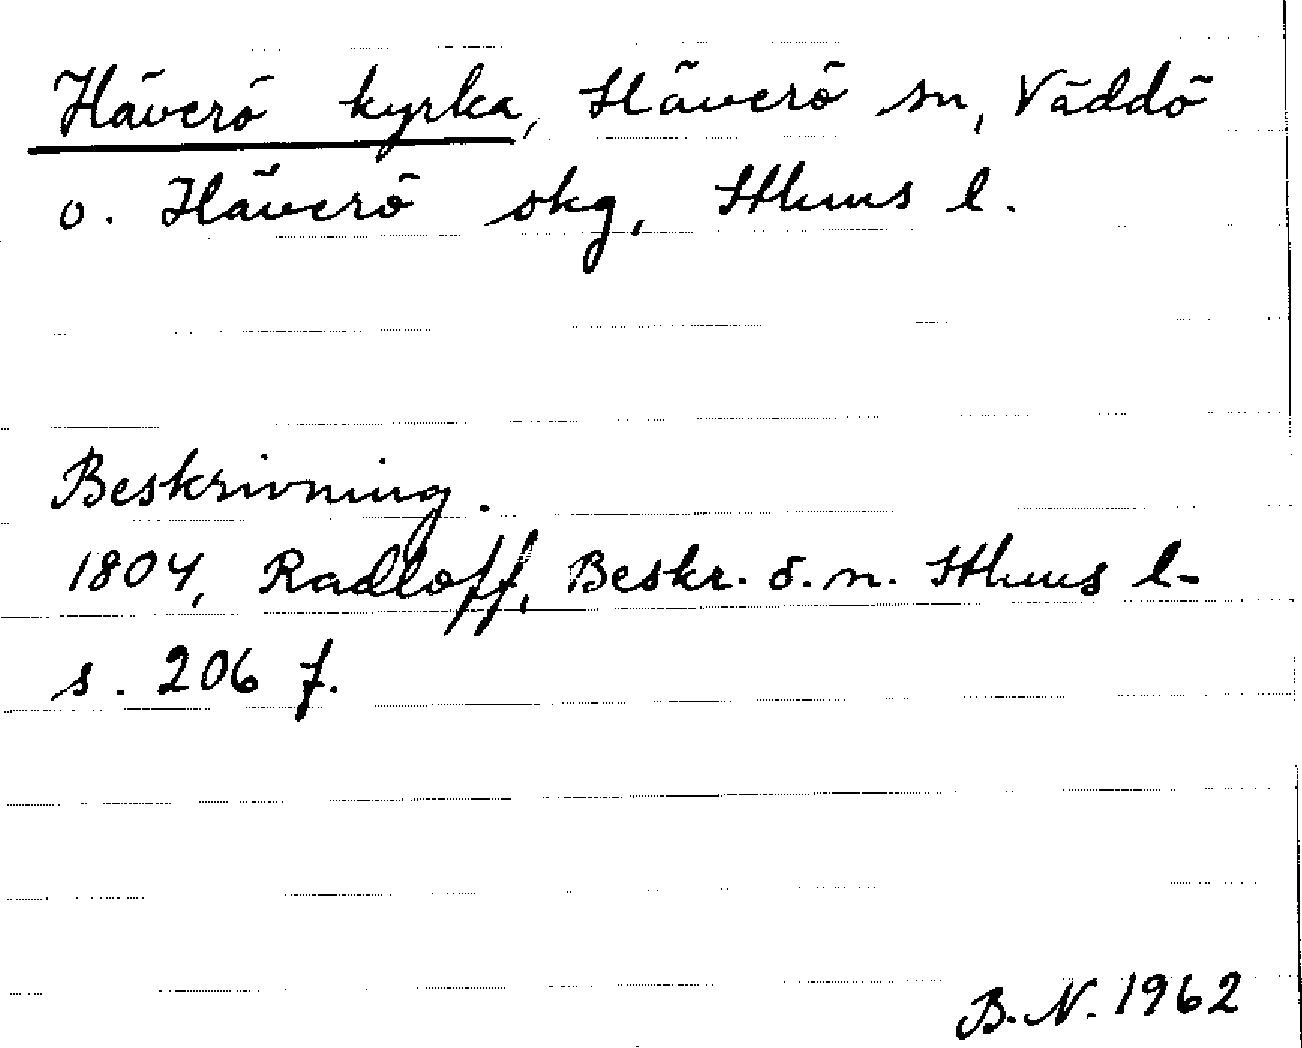 Häverö kyrka, Häverö sn, Väddö
o. Häverö skg, Sthms l.
Beskrivning.
1804, Radloff, Beskr. ö. n. Sthms l.
s. 206 f.
B.N. 1962